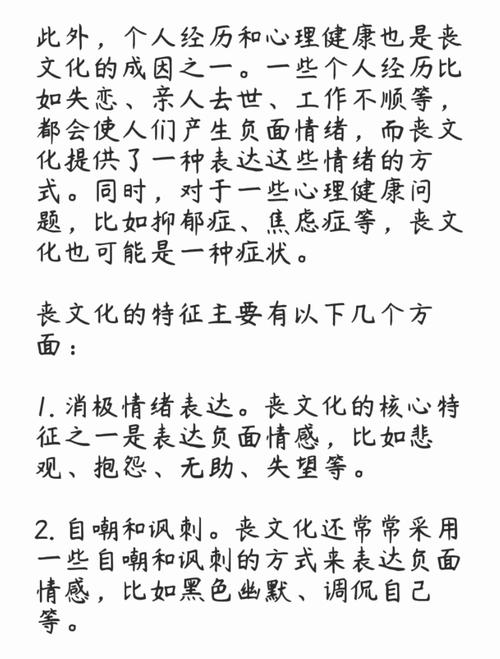 此外，个人经历和心理健康也是丧
文化的成因之一。一些个人经历比
如失恋、亲人去世、工作不顺等，
都会使人们产生负面情绪，而丧文
化提供了一种表达这些情绪的方
式。同时，对于一些心理健康问
题，比如抑郁症、焦虑症等，丧文
化也可能是一种症状。
丧文化的特征主要有以下几个方
面：
1. 消极情绪表达。丧文化的核心特
征之一是表达负面情感，比如悲
观、抱怨、无助、失望等。
2. 自嘲和讽刺。丧文化还常常采用
一些自嘲和讽刺的方式来表达负面
情感，比如黑色幽默、调侃自己
等。